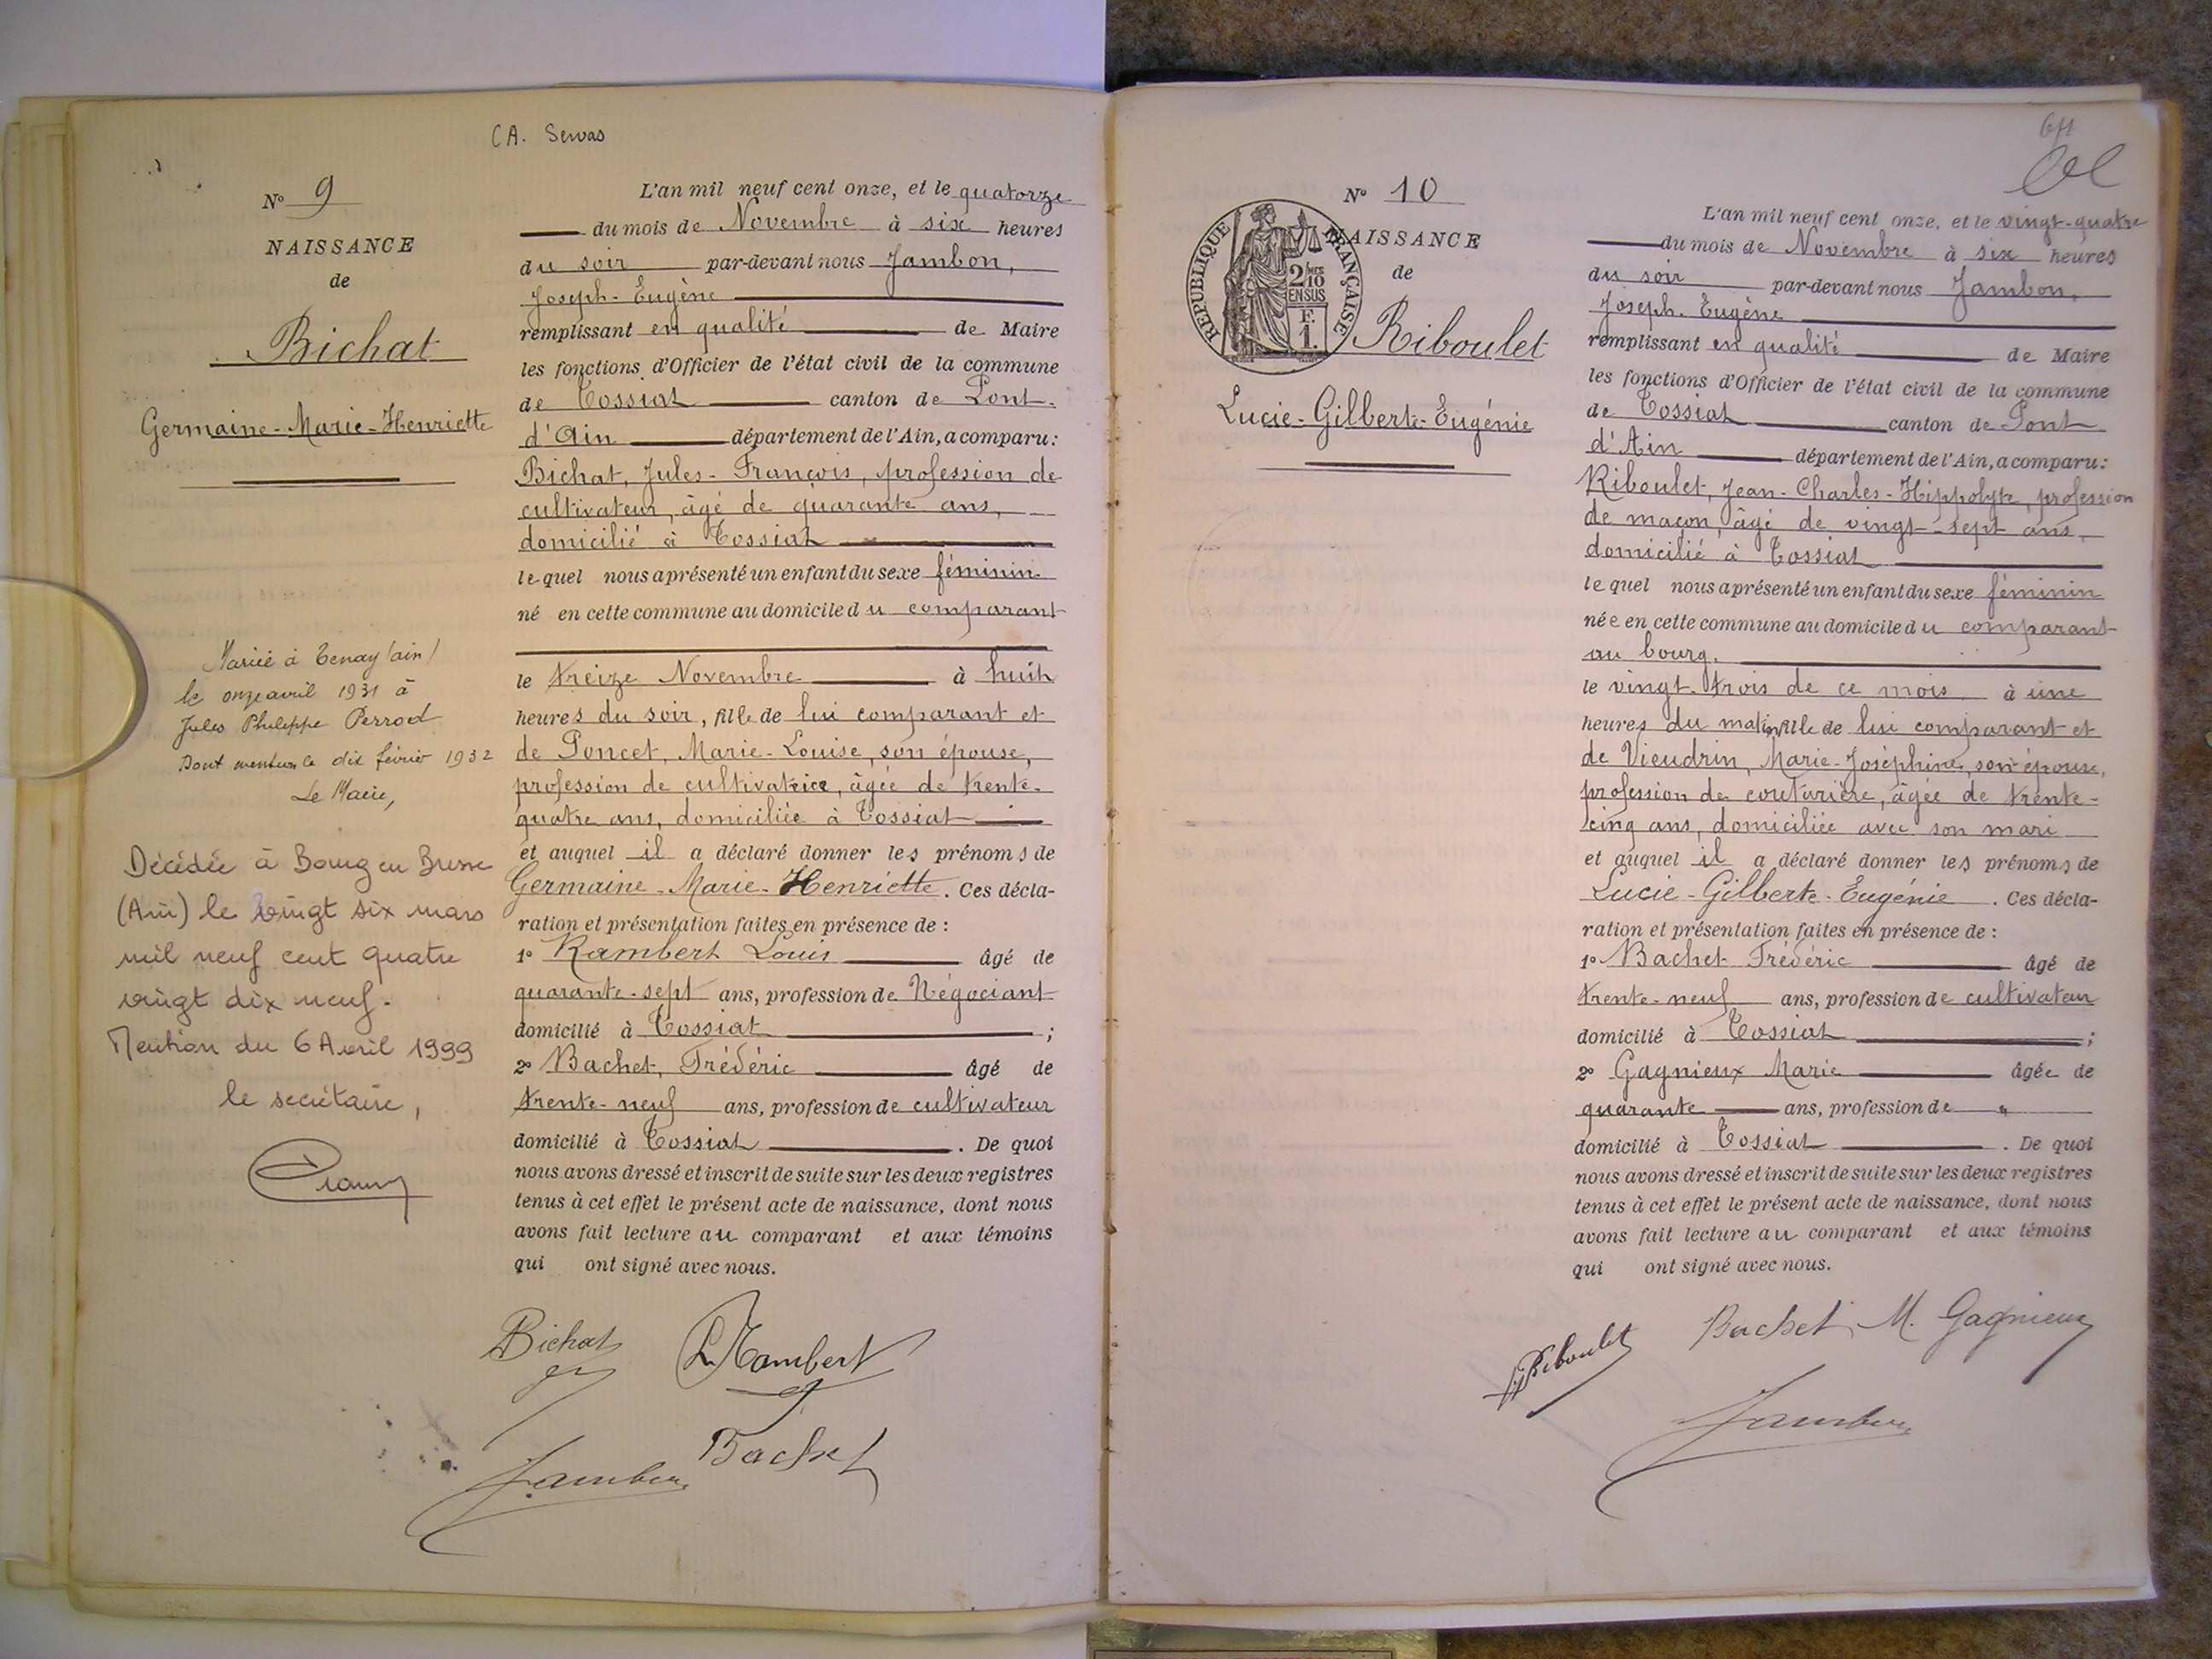 CA. Servas
N° 9
NAISSANCE
de
Bichat
Germaine-Marie-Henriette
Mariée à Tenay (ain)
le onze avril 1931 à
Jules Philippe Perrod
Dont mention le dix février 1932
Le Maire,
Décédée à Bourg en Bresse
(Ain) le vingt six mars
mil neuf cent quatre
vingt dix neuf.
Mention du 6 Avril 1999
le secrétaire,
L'an mil neuf cent onze, et le quatorze
du mois de Novembre à six heures
du soir par-devant nous Jambon,
Joseph-Eugène
remplissant en qualité de Maire
les fonctions d'Officier de l'état civil de la commune
de Tossiat canton de Pont-
d'Ain département de l'Ain, a comparu:
Bichat, Jules-François, profession de
cultivateur, âgé de quarante ans,
domicilié à Tossiat
lequel nous a présenté un enfant du sexe féminin
né en cette commune au domicile du comparant
le treize Novembre à huit
heures du soir, fille de lui comparant et
de Poncet, Marie-Louise, son épouse,
profession de cultivatrice, âgée de trente-
quatre ans, domiciliée à Tossiat
et auquel il a déclaré donner les prénoms de
Germaine-Marie-Henriette. Ces décla-
ration et présentation faites en présence de :
1° Rambert Louis âgé de
quarante-sept ans, profession de Négociant
domicilié à Tossiat ;
2° Bachet, Frédéric âgé de
trente-neuf ans, profession de cultivateur
domicilié à Tossiat . De quoi
nous avons dressé et inscrit de suite sur les deux registres
tenus à cet effet le présent acte de naissance, dont nous
avons fait lecture au comparant et aux témoins
qui ont signé avec nous.
Bichat L. Rambert
Jambon Bachet
N° 10
NAISSANCE
de
RÉPUBLIQUE FRANÇAISE
2/10
EN SUS
F.
1.
Riboulet
Lucie-Gilberte-Eugénie
L'an mil neuf cent onze, et le vingt-quatre
du mois de Novembre à six heures
du soir par-devant nous Jambon,
Joseph-Eugène
remplissant en qualité de Maire
les fonctions d'Officier de l'état civil de la commune
de Tossiat canton de Pont
d'Ain département de l'Ain, a comparu:
Riboulet, Jean-Charles-Hippolyte, profession
de maçon, âgé de vingt-sept ans,
domicilié à Tossiat
lequel nous a présenté un enfant du sexe féminin
née en cette commune au domicile du comparant
au bourg.
le vingt-trois de ce mois à une
heures du matin, fille de lui comparant et
de Vieudrin, Marie-Joséphine, son épouse,
profession de couturière, âgée de trente-
cinq ans, domiciliée avec son mari
et auquel il a déclaré donner les prénoms de
Lucie-Gilberte-Eugénie . Ces décla-
ration et présentation faites en présence de :
1° Bachet Frédéric âgé de
trente-neuf ans, profession de cultivateur
domicilié à Tossiat ;
2° Gagnieux Marie âgée de
quarante ans, profession de "
domicilié à Tossiat . De quoi
nous avons dressé et inscrit de suite sur les deux registres
tenus à cet effet le présent acte de naissance, dont nous
avons fait lecture au comparant et aux témoins
qui ont signé avec nous.
Riboulet Bachet M. Gagnieux
Jambon